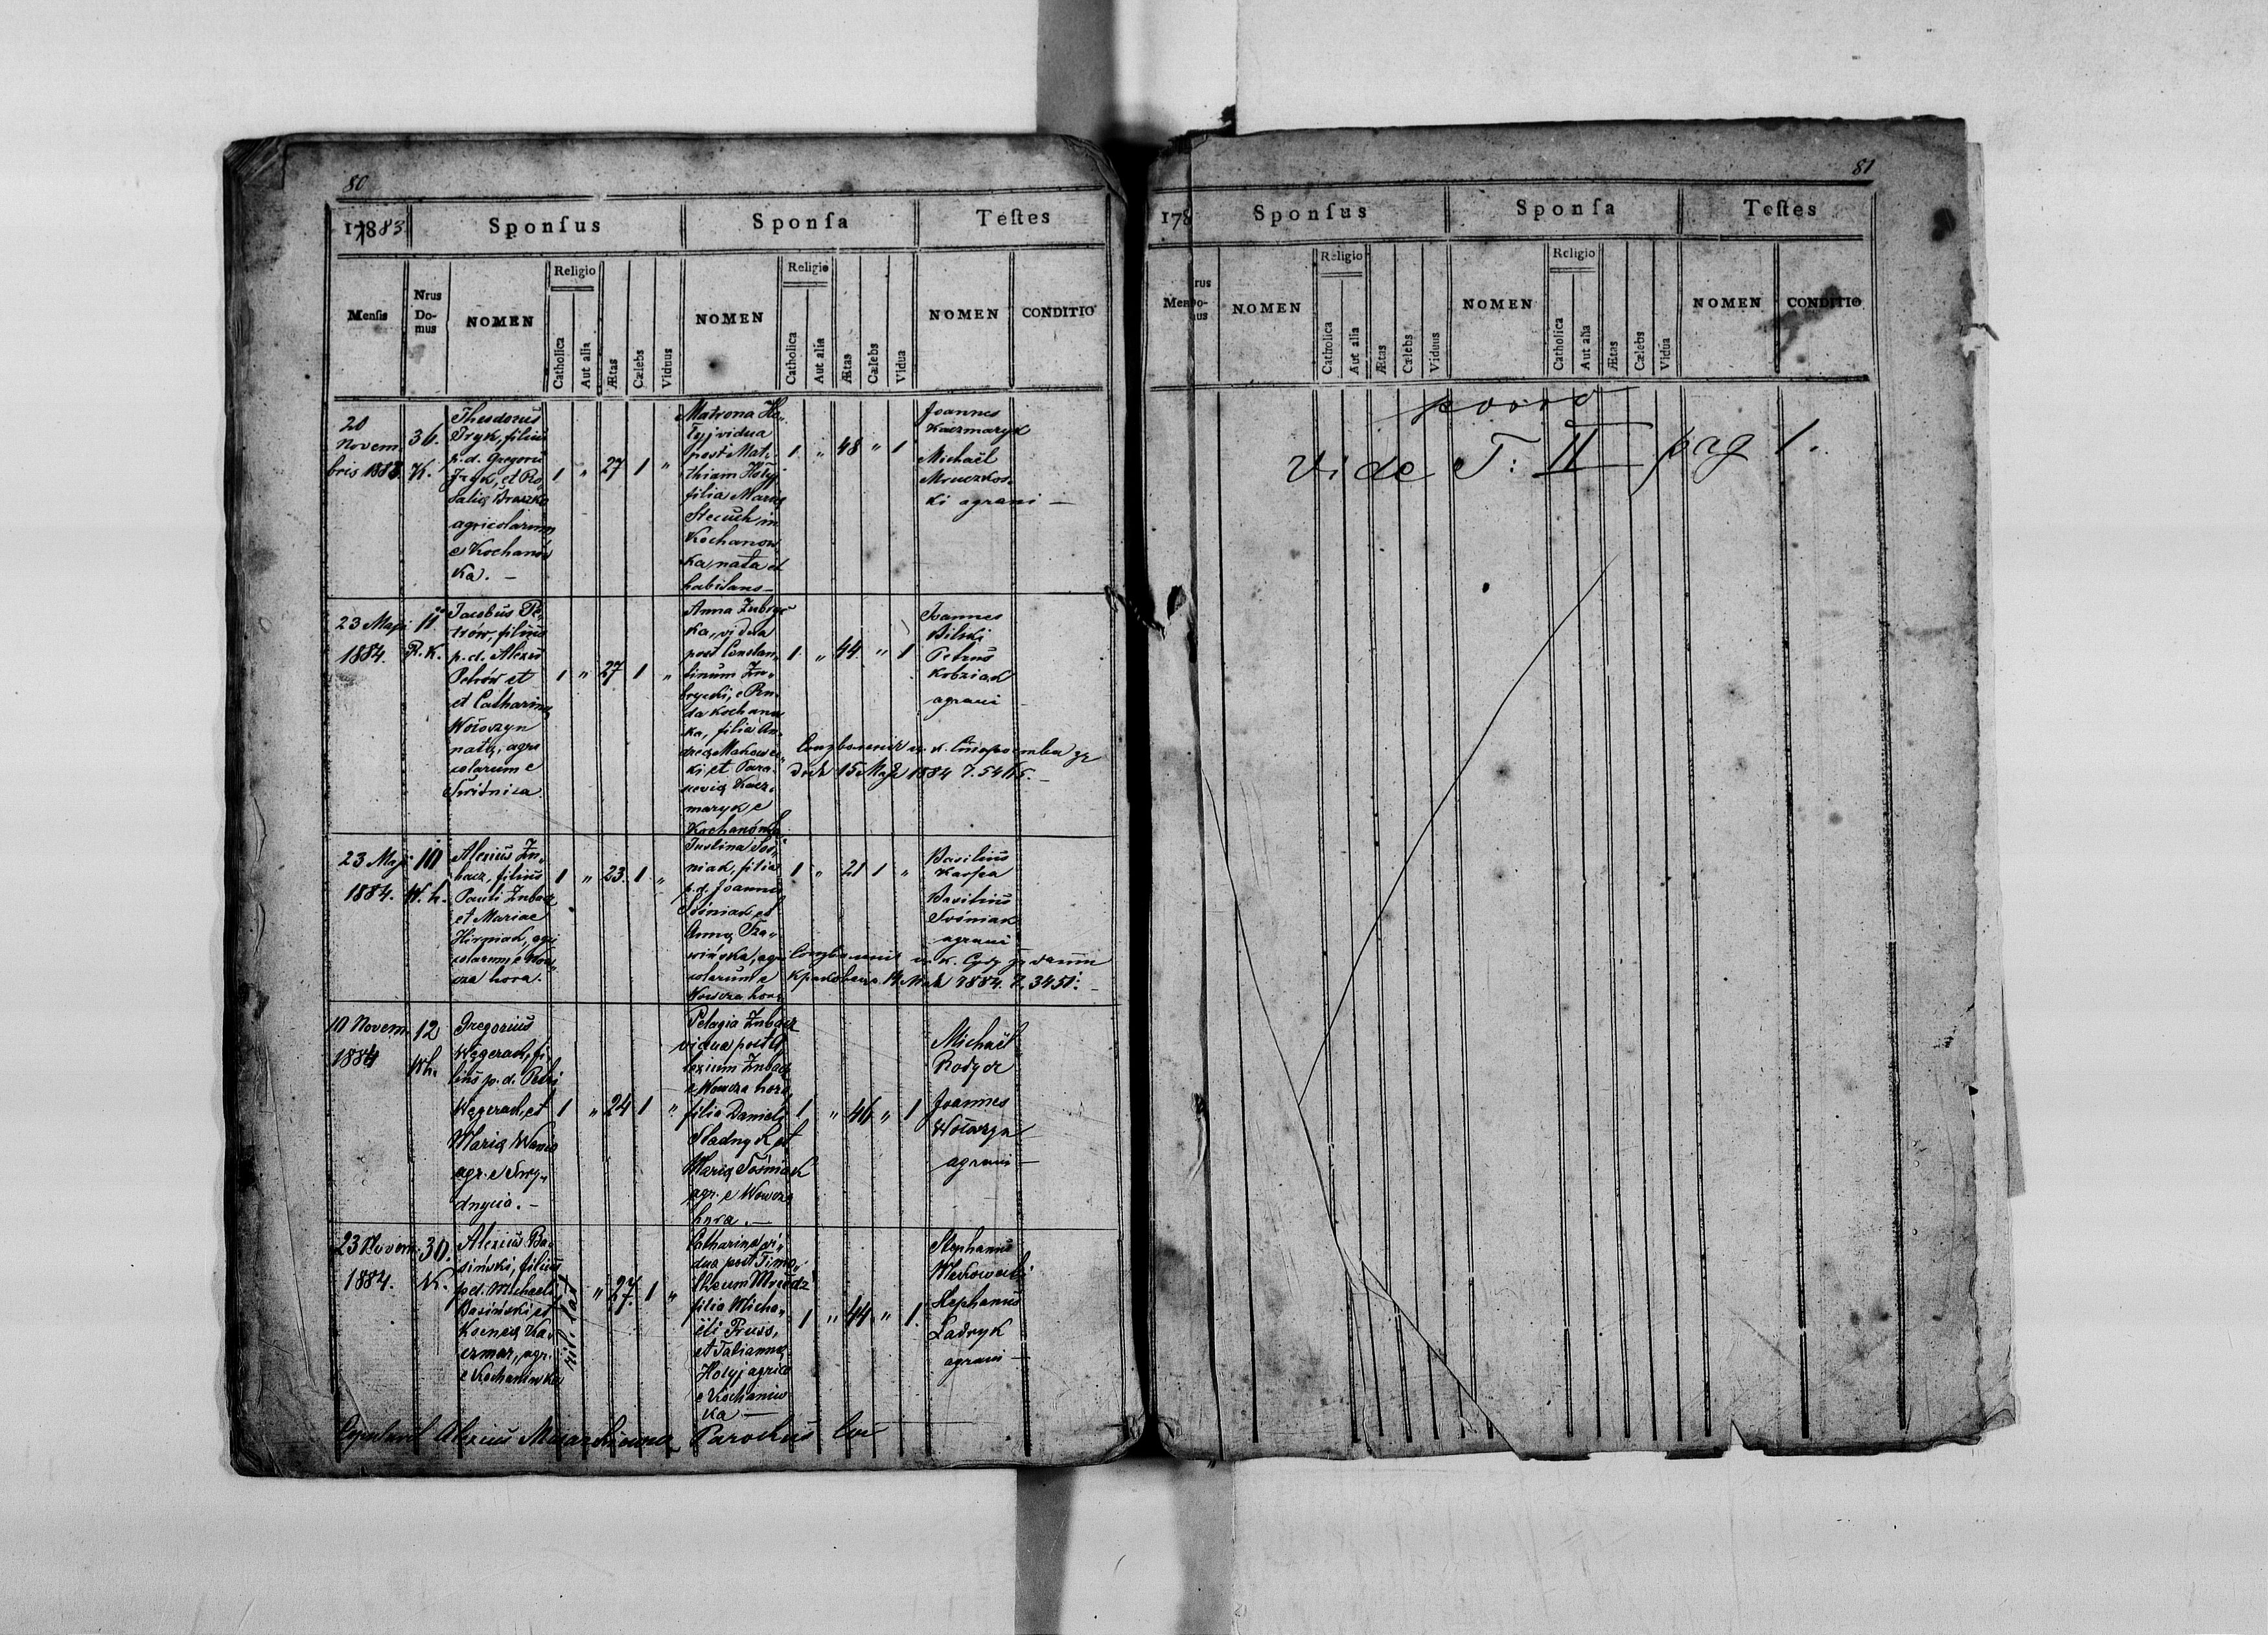 80
17883
Sponſus
Sponſa
Teſtes
Menſis
Nrus
Do-
mus
NOMEN
Religio
Catholica
Aut alia
Ætas
Cælebs
Viduus
NOMEN
Religio
Catholica
Aut alia
Ætas
Cælebs
Vidua
NOMEN
CONDITIO
20
Novem
bris 1883.
36.
K.
Theodorus
Fryk, filius
p.d. Gregorii
Fryk, et Ro
saliæ
agricolarum
e Kochanów
ka. —
1 „ 27 1 „
Matrona Ho„
łyj vidua
post Mat„
thiam Hołyj
filia Mariæ
Stecuch in
Kochanow
ka, nata et
habitans —
1. „ 48 „ 1
Joannes
Kaczmaryk
Michaël
Mruczkos„
ki agrani —
23 Maji
1884.
11.
R. K.
Jacobus Pe„
trów, filius
p.d. Alexii
Petrów et
et Catharinæ
Wołoszyn
natæ, agri
colarum e
Świdnica.
1 „ 27 1 „
Anna Zubryc
ka, vidua
post Constan„
tinum Zu„
brycki, e Ru„
da Kochanow
ka, filia An„
dreæ Makows„
ki et Para„
sceviæ Kacz„
maryk, e
Kochanówka
1. „ 44. „ 1
Joannes
Bilski
Petrus
Kobziak
agrani
15 Maja 1884
23 Maji
1884.
10
W. h.
Alexius Zu„
bacz, filius
Pauli Zubacz
et Mariae
Hirniak, agri
colarum e Wow„
cza hora.
1 „ 23. 1 „
Justina Soś„
niak, filia
p.d. Joannis
Sośniak et
Annæ
agri
colarum e
Wowcza hora
1 „ 21 1 „
Basilius
Karpa
Basilius
Sośniak
agrani
1884. 7. 3451.
10 Novem
1884
12
Wh.
Gregorius
Węgerak, fi„
lius p.d. Petri
Węgerak, et
Mariæ
agr. e Świ„
dnyca. —
1 „ 24 1 „
Pelagia Zubacz
vidua post A
lexium Zubacz
e Wowcza hora
filia Danielis
Sladnyk et
Mariæ Sośniak
agr. e Wowcza
hora. —
1 „ 46 „ 1
Michaël
Rodycz
Joannes
agrani —
23 Novem.
1884.
30.
K.
Alexius Ba„
siński, filius
p.d. Michaelis
Basiński, et
Kseniæ Ka„
czmar, agr.
e Kochanówka
rit. lat
„ 27. 1 „
Catharina vi„
dua post Timo„
theum
filia Micha„
ëli Pruss,
et Tatiannæ
Hołyj agrico
e Kochanów
ka —
1 „ 44 „ 1.
Stephanus
Makowski
Stephanus
Ładryk
agrani —
Copulavit Alexius Parochus loci
81
178
Sponſus
Sponſa
Teſtes
Men
rus
Do-
nus
NOMEN
Religio
Catholica
Aut alia
Ætas
Cælebs
Viduus
NOMEN
Religio
Catholica
Aut alia
Ætas
Cælebs
Vidua
NOMEN
CONDITIO
porro
vide T: II pag 1.